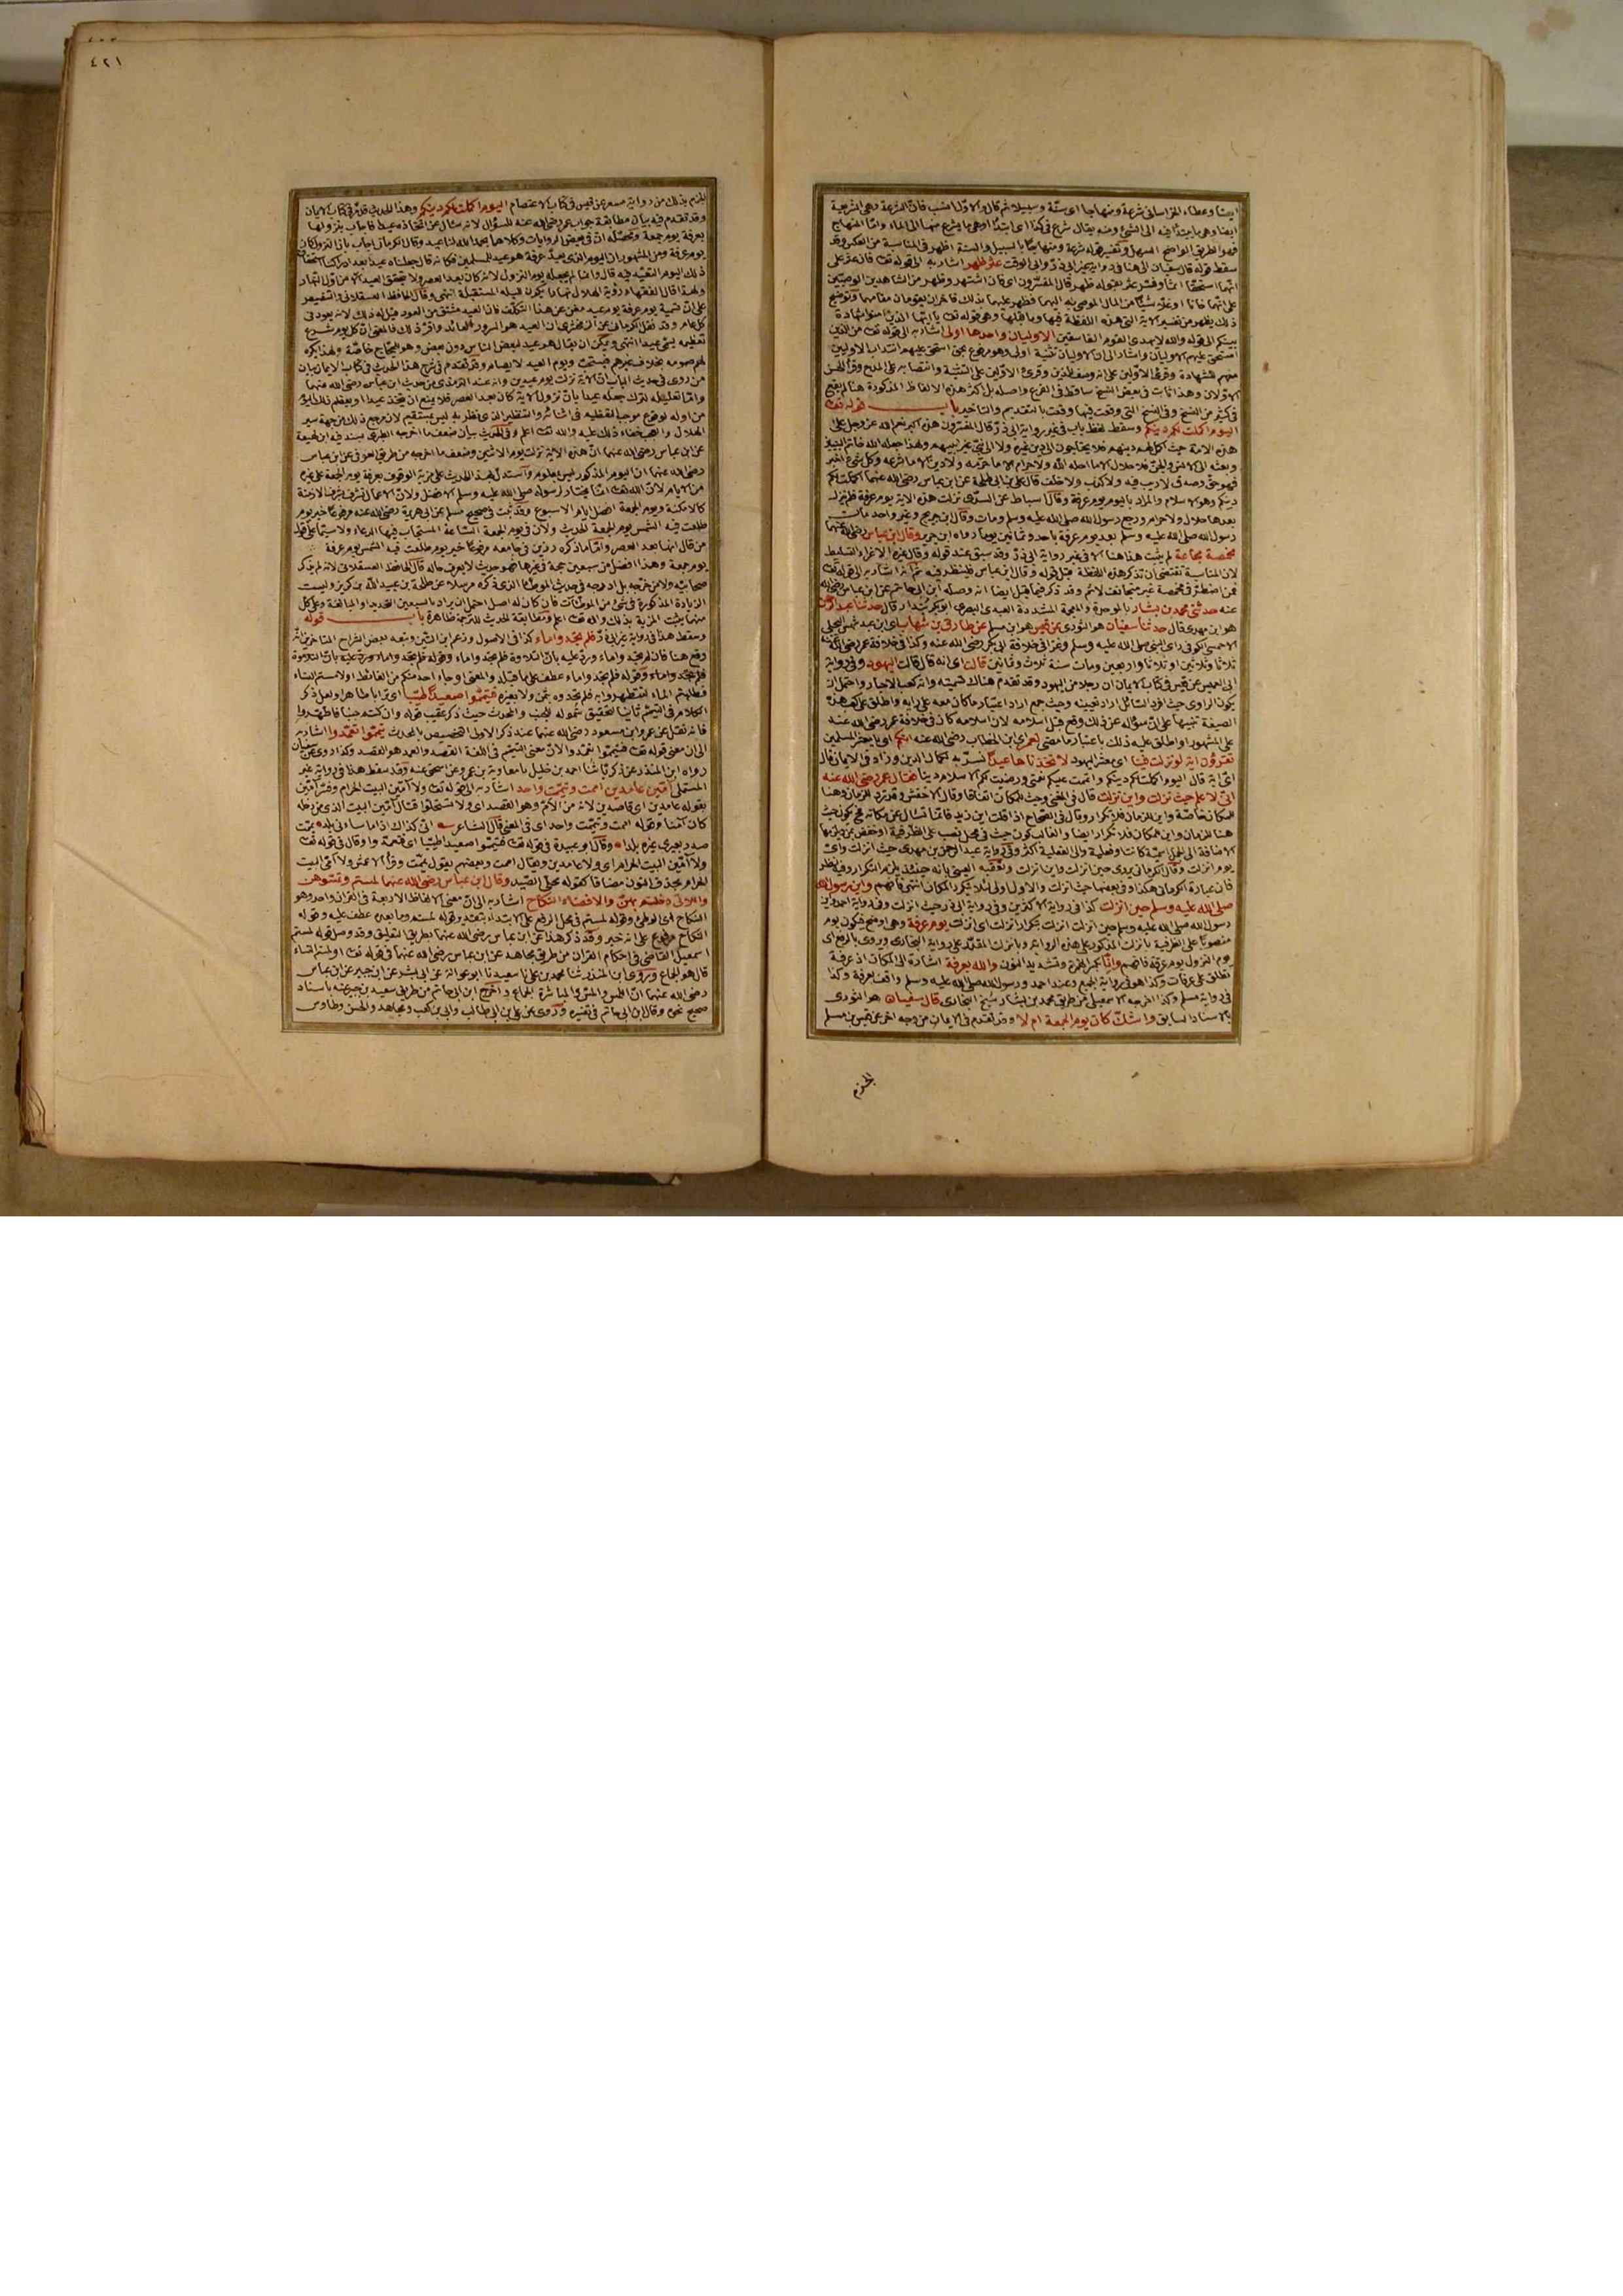 ايضا وعطاء الخراساني شرعة ومنهاجا اى سنّة وسبيلا ثم قال والاوّل انسب فانّ الشرعة وهى الشريعة
ايضا وهى ما يبتدأ فيه الى الشئ ومنه يقال شرع فى كذا اى ابتدأ اوهى ما يشرع منها الى الماء وامّا المنهاج
فهو الطريق الواضح السهل وتفسير قوله شرعة ومنهاجًا بالسبيل والسنة اظهر فى المناسبة من العكس وقد
سقط قوله قال سفيان الى هنا فى رواية غير ابى ذرّ وابى الوقت عثر ظهر اشار به الى قوله تعـ فان عثر على
انّهما استحقّا اثما وفسّر عثر بقوله ظهر قال المفسّرون اى فان اشتهر وظهر من الشاهدين الوصيّين
على انّهما خانا او غلّا شيئًا من المال الموصى به اليهما فظهر عليهما بذلك فاخران يقومان مقامهما وتوضيح
ذلك يظهر من تفسير الاية التى هذه اللفظة فيها وما قبلها وهى قوله تعـ يا ايّها الذين امنوا شهادة
بينكم الى قوله والله لا يهدى القوم الفاسقين الاوليان واحدها اولى اشار به الى قوله تعـ من الذين
استحق عليهم الاوليان واشار الى ان الاوليان تثنية اولى وهو مرفوع بمن استحق عليهم انتداب الاوليين
منهم للشهادة وقرئ الاوّلين على انه وصف للذين وقرئ الاوّلين على التثنية وانتصابه على المدح وقرأ الحسن
الاوّلان وهذا ثابت فى بعض النسخ ساقط فى الفرع واصله بل اكثر هذه الالفاظ المذكورة هنا لم يقع
فى كثير من النسخ وفى النسخ التى وقعت فيها وقعت بالتقديم والتاخير باب قوله تعـ
اليوم اكملت لكم دينكم وسقط لفظ باب فى غير رواية ابى ذرّ قال المفسّرون هذه اكبر نعم الله عزوجل على
هذه الامة حيث اكمل لهم دينهم فلا يحتاجون الى دين غيره ولا الى نبىّ غير نبيهم ولهذا جعله الله خاتم النبيين
وبعثه الى الانس والجنّ فلا حلال الا ما احله الله ولا حرام الا ما حرّمه ولا دين الا ما شرعه وكل شئ اخبر
فهو حق وصدق لا ريب فيه ولا كذب ولا خلف قال على بن ابى طلحة عن ابن عباس رضى الله عنهما اكملت لكم
دينكم وهو الاسلام والمراد باليوم يوم عرفة وقال اسباط عن السدّى نزلت هذه الاية يوم عرفة فلم ينزل
بعدها حلال ولا حرام ورجع رسول الله صلى الله عليه وسلم ومات وقال ابن جريج وغير واحد مات
رسول الله صلى الله عليه وسلم بعد يوم عرفة باحد وثمانين يوما رواه ابن جرير وقال ابن عباس رضى الله عنهما
مخمصة مجاعة لم يثبت هذا هنا الا فى غير رواية ابى ذرّ وقد سبق عند قوله وقال غيره الاغراء التسليط
لان المناسبة تقتضى ان تذكر هذه اللفظة قبل قوله وقال ابن عباس فلينظر فيه ثم انه اشار به الى قوله تعـ
فمن اضطرّ فى مخمصة غير متجانف لاثم وقد ذكر فيما قبل ايضا انه وصله ابن ابى حاتم عن ابن عباس رضى الله
عنه حدثنى محمد بن بشار بالموحدة والمعجمة المشددة العبدى البصرى ابو بكر بندار قال حدثنا عبد الرحمن
هو ابن مهدى قال حدثنا سفيان هو الثورى عن قيس هو ابن مسلم عن طارق بن شهاب اى ابن عبد شمس البجلى
الاحمسى الكوفى راى النبى صلى الله عليه وسلم وغزا فى خلافة ابى بكر رضى الله عنه وكذا فى خلافة عمر رضى الله عنه
ثلاثا وثلاثين او ثلاثا واربعين ومات سنة ثلاث وثمانين قالت اى انه قال قالت اليهود وفى رواية
ابى العميس عن قيس فى كتاب الايمان ان رجلا من اليهود وقد تقدم هناك تسميته وانه كعب الاحبار واحتمل ان
يكون الراوى حيث افرد السائل اراد تعيينه وحيث جمع اراد اعتبار ما كان معه على رايه واطلق على كعب هذه
الصيغة تنبيها على انّ سؤاله عن ذلك وقع قبل اسلامه لان اسلامه كان فى خلافة عمر رضى الله عنه
على المشهور او اطلق عليه ذلك باعتبار ما مضى لعمر اى ابن الخطاب رضى الله عنه انكم اى يا معشر المسلمين
تقرؤن اية لو نزلت فينا اى معشر اليهود لاتخذناها عيدًا نسرّ به لكمال الدين وزاد فى الايمان قال
اىّ اية قال اليوم اكملت لكم دينكم واتممت عليكم نعمتى ورضيت لكم الاسلام دينا فقال عمر رضى الله عنه
انى لاعلم حيث نزلت واين نزلت قال فى المغنى وحيث للمكان اتفاقا وقال الاخفش وقد ترد للزمان وهنا
للمكان خاصّة واين للزمان فلا تكرار وقال فى الصّحاح اذا قلت اين زيد فانّما تسأل عن مكانه
هنا للزمان واين للمكان فلا تكرار ايضا والغالب كون حيث فى محل نصب على الظرفية او خفض بمن ويلزمها
الاضافة الى الجمل اسميّة كانت او فعلية والى الفعلية اكثر وفى رواية عبد الرحمن بن مهدى حيث انزلت واىّ
يوم انزلت وقال الكرمانى يروى حين انزلت واين انزلت وتعقبه العينى بانه حينئذ يلزم التكرار وفيه نظر
فان عبارة الكرمانى هكذا وفى بعضها حيث انزلت والاول اولى لئلا يتكرر المكان انتهى فافهم واين رسول الله
صلى الله عليه وسلم حين انزلت كذا فى رواية الاكثرين وفى رواية ابى ذر حيث انزلت وفى رواية احمد واين
رسول الله صلى الله عليه وسلم حين انزلت انزلت بتكرار انزلت اى انزلت يوم عرفة وهى اوضح فيكون يوم
منصوبًا على الظرفية بانزلت المذكور على هذه الرواية وبانزلت المقدّر على رواية البخارى وروى بالرفع اى
يوم النزول يوم عرفة فافهم وانّا بكسر الهمزة وتشديد النون والله بعرفة اشارة الى المكان اذ عرفة
تطلق على عرفات وكذا هو فى رواية الجميع وعند احمد ورسول الله صلى الله عليه وسلم واقف بعرفة وكذا
فى رواية مسلم وكذا اخرجه الاسمعيلى من طريق محمد بن بشار شيخ البخارى قال سفيان هو الثورى
بالاسناد السابق واشكّ كان يوم الجمعة ام لا وقد تقدم فى الايمان من وجه اخر عن قيس بن مسلم
الجزم
٤٢١
الجزم بذلك من رواية مسعر عن قيس فى كتاب الاعتصام اليوم اكملت لكم دينكم وهذا الحديث قد مرّ فى كتاب الايمان
وقد تقدم فيه بيان مطابقة جواب عمر رضى الله عنه للسؤال لانه سأل عن اتخاذه عيدا فاجاب بنزولها
بعرفة يوم جمعة ومحصّله انّ فى بعض الروايات وكلاهما بحمد الله لنا عيد وقال الكرمانى اجاب بانّ النزول كان
يوم عرفة ومن المشهور ان اليوم الذى بعد عرفة هو عيد للمسلمين فكانه قال جعلناه عيدا بعد ادراكنا استحقاق
ذلك اليوم التعبّد فيه قال وانما لم يجعله يوم النزول لانه كان بعد العصر ولا يتحقق العيد الا من اول النهار
ولهذا قال الفقهاء رؤية الهلال نهارا يكون لليلة المستقبلة انتهى وقال الحافظ العسقلانى والتنصيص
على انّ تسمية يوم عرفة يوم عيد يغنى عن هذا التكلّف فان العيد مشتق من العود قيل له ذلك لانه يعود فى
كل عام وقد نقل الكرمانى عن الزمخشرى ان العيد هو السرور العائد واقرّ ذلك فالمعنى انّ كل يوم شرع
تعظيمه يسمّى عيدا انتهى ويمكن ان يقال هو عيد لبعض الناس دون بعض وهو للحجاج خاصّة ولهذا يكره
لهم صومه بخلاف غيرهم فيستحب ويوم العيد لا يصام وقد تقدم فى شرح هذا الحديث فى كتاب الايمان بيان
من روى فى حديث الباب انّ الاية نزلت يوم عيدين وانه عند الترمذى من حديث ابن عباس رضى الله عنهما
وامّا تعليله لترك جعله عيدا بانّ نزول الاية كان بعد العصر فلا يمنع ان يتخذ عيدا او يعظم ذلك اليوم
من اوله لوقوع موجب التعظيم فى اثنائه والتنظير الذى نظر به ليس بمستقيم لان مرجع ذلك من جهة سير
الهلال والعجب خفاء ذلك عليه والله تعـ اعلم وفى الحديث بيان ضعف ما اخرجه الطبرى بسند فيه ابن لهيعة
عن ابن عباس رضى الله عنهما انّ هذه الاية نزلت يوم الاثنين وضعف ما اخرجه من طريق العوفى عن ابن عباس
رضى الله عنهما ان اليوم المذكور ليس بمعلوم واستدل بهذا الحديث على مزية الوقوف بعرفة يوم الجمعة على غيره
من الايام لانّ الله تعـ انما يختار لرسوله صلى الله عليه وسلم الافضل ولانّ الاعمال تشرف بشرف الازمنة
كالامكنة ويوم الجمعة افضل ايام الاسبوع وقد ثبت فى صحيح مسلم عن ابى هريرة رضى الله عنه مرفوعًا خير يوم
طلعت فيه الشمس يوم الجمعة الحديث ولان فى يوم الجمعة الساعة المستجاب فيها الدعاء ولا سيّما على قول
من قال انها بعد العصر وامّا ما ذكره رزين فى جامعه مرفوعًا خير يوم طلعت فيه الشمس يوم عرفة
يوم جمعة وهذا افضل من سبعين حجة فى غيرها فهو حديث لا يعرف حاله قال الحافظ العسقلانى لانه لم يذكر
صحابيّه ولا من خرّجه بل ادرجه فى حديث الموطّا الذى ذكره مرسلا عن طلحة بن عبيد الله بن كريز وليست
الزيادة المذكورة فى شئ من الموطّآت فان كان له اصل احتمل ان يراد بالسبعين التحديد او المبالغة وعلى كل
منهما يثبت المزية بذلك والله تعـ اعلم ومطابقة الحديث للترجمة ظاهرة باب قوله
وسقط هذا فى رواية غير ابى ذرّ فلم تجدوا ماء كذا فى الاصول وزعم ابن التين وتبعه بعض الشراح المتاخرين انّه
وقع هنا فان لم تجدوا ماء وردّ عليه بانّ التلاوة فلم تجدوا ماء وقوله فلم تجدوا ماء وردّ عليه بانّ التلاوة
فلم تجدوا ماء وقوله فلم تجدوا ماء عطف على ما قبله والمعنى او جاء احد منكم من الغائط او لامستم النساء
فطلبتم الماء لتتطهروا به فلم تجدوه بثمن ولا بغيره فتيمّموا صعيدًا طيّبًا اى ترابا طاهرا ولعل ذكر
الكلام فى التيمّم ثانيا لتحقيق شموله للجنب والمحدث حيث ذكر عقيب قوله وان كنتم جنبا فاطّهّروا
فانه نقل عن عمر وابن مسعود رضى الله عنهما عند ذكر الاولى التخصيص بالمحدث تيمّموا تعمّدوا اشار به
الى ان معنى قوله تعـ فتيمّموا تعمّدوا لانّ معنى التيمّم فى اللغة القصد والعمد هو القصد وكذا روى عن سفيان
رواه ابن المنذر عن زكريّا ثنا احمد بن خليل نا معاوية بن عمرو عن اسحق عنه وقد سقط هذا فى رواية غير
المستملى آمّين عامدين اممت وتيمّمت واحد اشار به الى قوله تعـ ولا آمّين البيت الحرام وفسّر آمّين
بقوله عامدين اى قاصدين لانه من الامّ وهو القصد اى ولا تستحلوا قتال آمّين البيت الذى من دخله
كان آمنا وقوله اممت وتيمّمت واحد اى فى المعنى قال الشاعر انى كذاك اذا ما ساءنى بلد يمّمت
صدر بعيرى غيره بلدا وقال ابو عبيدة فى قوله تعـ فتيمّموا صعيدا طيّبا اى فتعمّدوا وقال فى قوله تعـ
ولا آمّين البيت الحرام اى ولا عامدين ويقال اممت وبعضهم يقول يمّمت وقرأ الاعمش ولا آمّى البيت
الحرام بحذف النون مضافا كقوله محلّى الصّيد وقال ابن عباس رضى الله عنهما لمستم وتمسّوهن
واللاتى دخلتم بهنّ والافضاء النكاح اشار به الى انّ معنى الالفاظ الاربعة فى القران واحد وهو
النكاح اى الوطئ وقوله لمستم فى محل الرفع على الابتداء بتقدير قوله لمستم وما بعده عطف عليه وقوله
النكاح مرفوع على انه خبر وقد ذكر هذا عن ابن عباس رضى الله عنهما بطريق التعليق وقد وصل قوله لمستم
اسمعيل القاضى فى احكام القران من طريق مجاهد عن ابن عباس رضى الله عنهما فى قوله تعـ او لمستم النساء
قال هو الجماع وروى ابن المنذر ثنا محمد بن على نا سعيد نا ابو عوانة عن ابى بشر عن ابن جبير عن ابن عباس
رضى الله عنهما انّ اللمس والمسّ والمباشرة الجماع واخرج ابن ابى حاتم من طريق سعيد بن جبير عنه باسناد
صحيح نحوه وقال ابن ابى حاتم فى تفسيره وروى عن على بن ابى طالب وابى بن كعب ومجاهد والحسن وطاوس